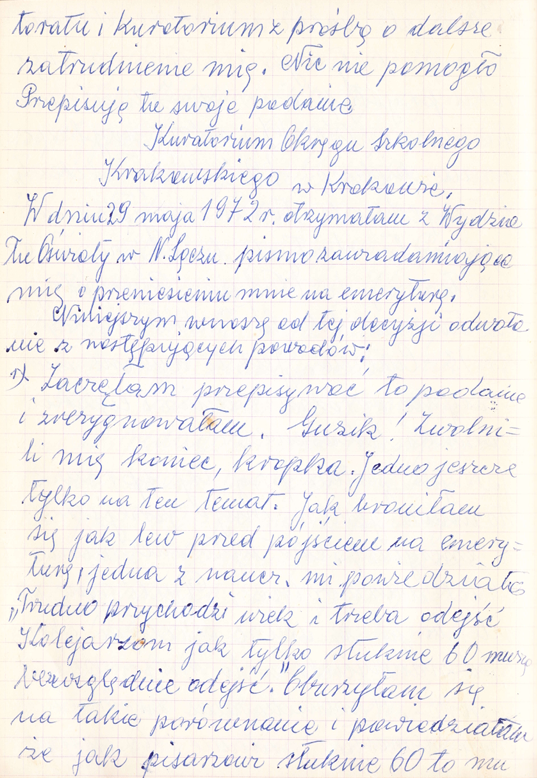 toratu i Kuratorium z prośbą o dalsze
zatrudnienie mię. Nic nie pomogło
Przepisuję tu swoje podanie
Kuratorium Okręgu Szkolnego
Krakowskiego w Krakowie.
W dniu 29 maja 1972 r. otrzymałam z Wydzia
łu Oświaty w N. Sączu. pismo zawiadamiające
mię o przeniesieniu mnie na emeryturę.
Niniejszym wnoszę od tej decyzji odwoła
nie z następujących powodów:
1) Zaczęłam przepisywać to podanie
i zrezygnowałam. Guzik! Zwolni=
li mię koniec, kropka. Jedno jeszcze
tylko na ten temat. Jak broniłam
się jak lew przed pójściem na emery=
turę, jedna z naucz. mi powiedziała
„Trudno przychodzi wiek i trzeba odejść
Kolejarzom jak tylko stuknie 60 muszą
bezwzględnie odejść." Oburzyłam się
na takie porównanie i powiedziałam
że jak pisarzowi stuknie 60 to mu